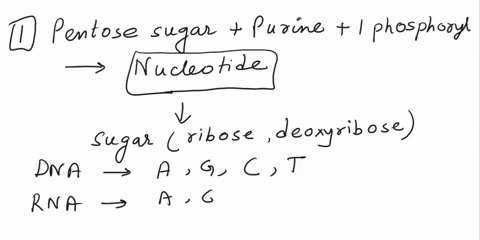 1 Pentose sugar + Purine + 1 phosphoryl
→ Nucleotide
↓
sugar (ribose, deoxyribose)
DNA → A, G, C, T
RNA → A, G